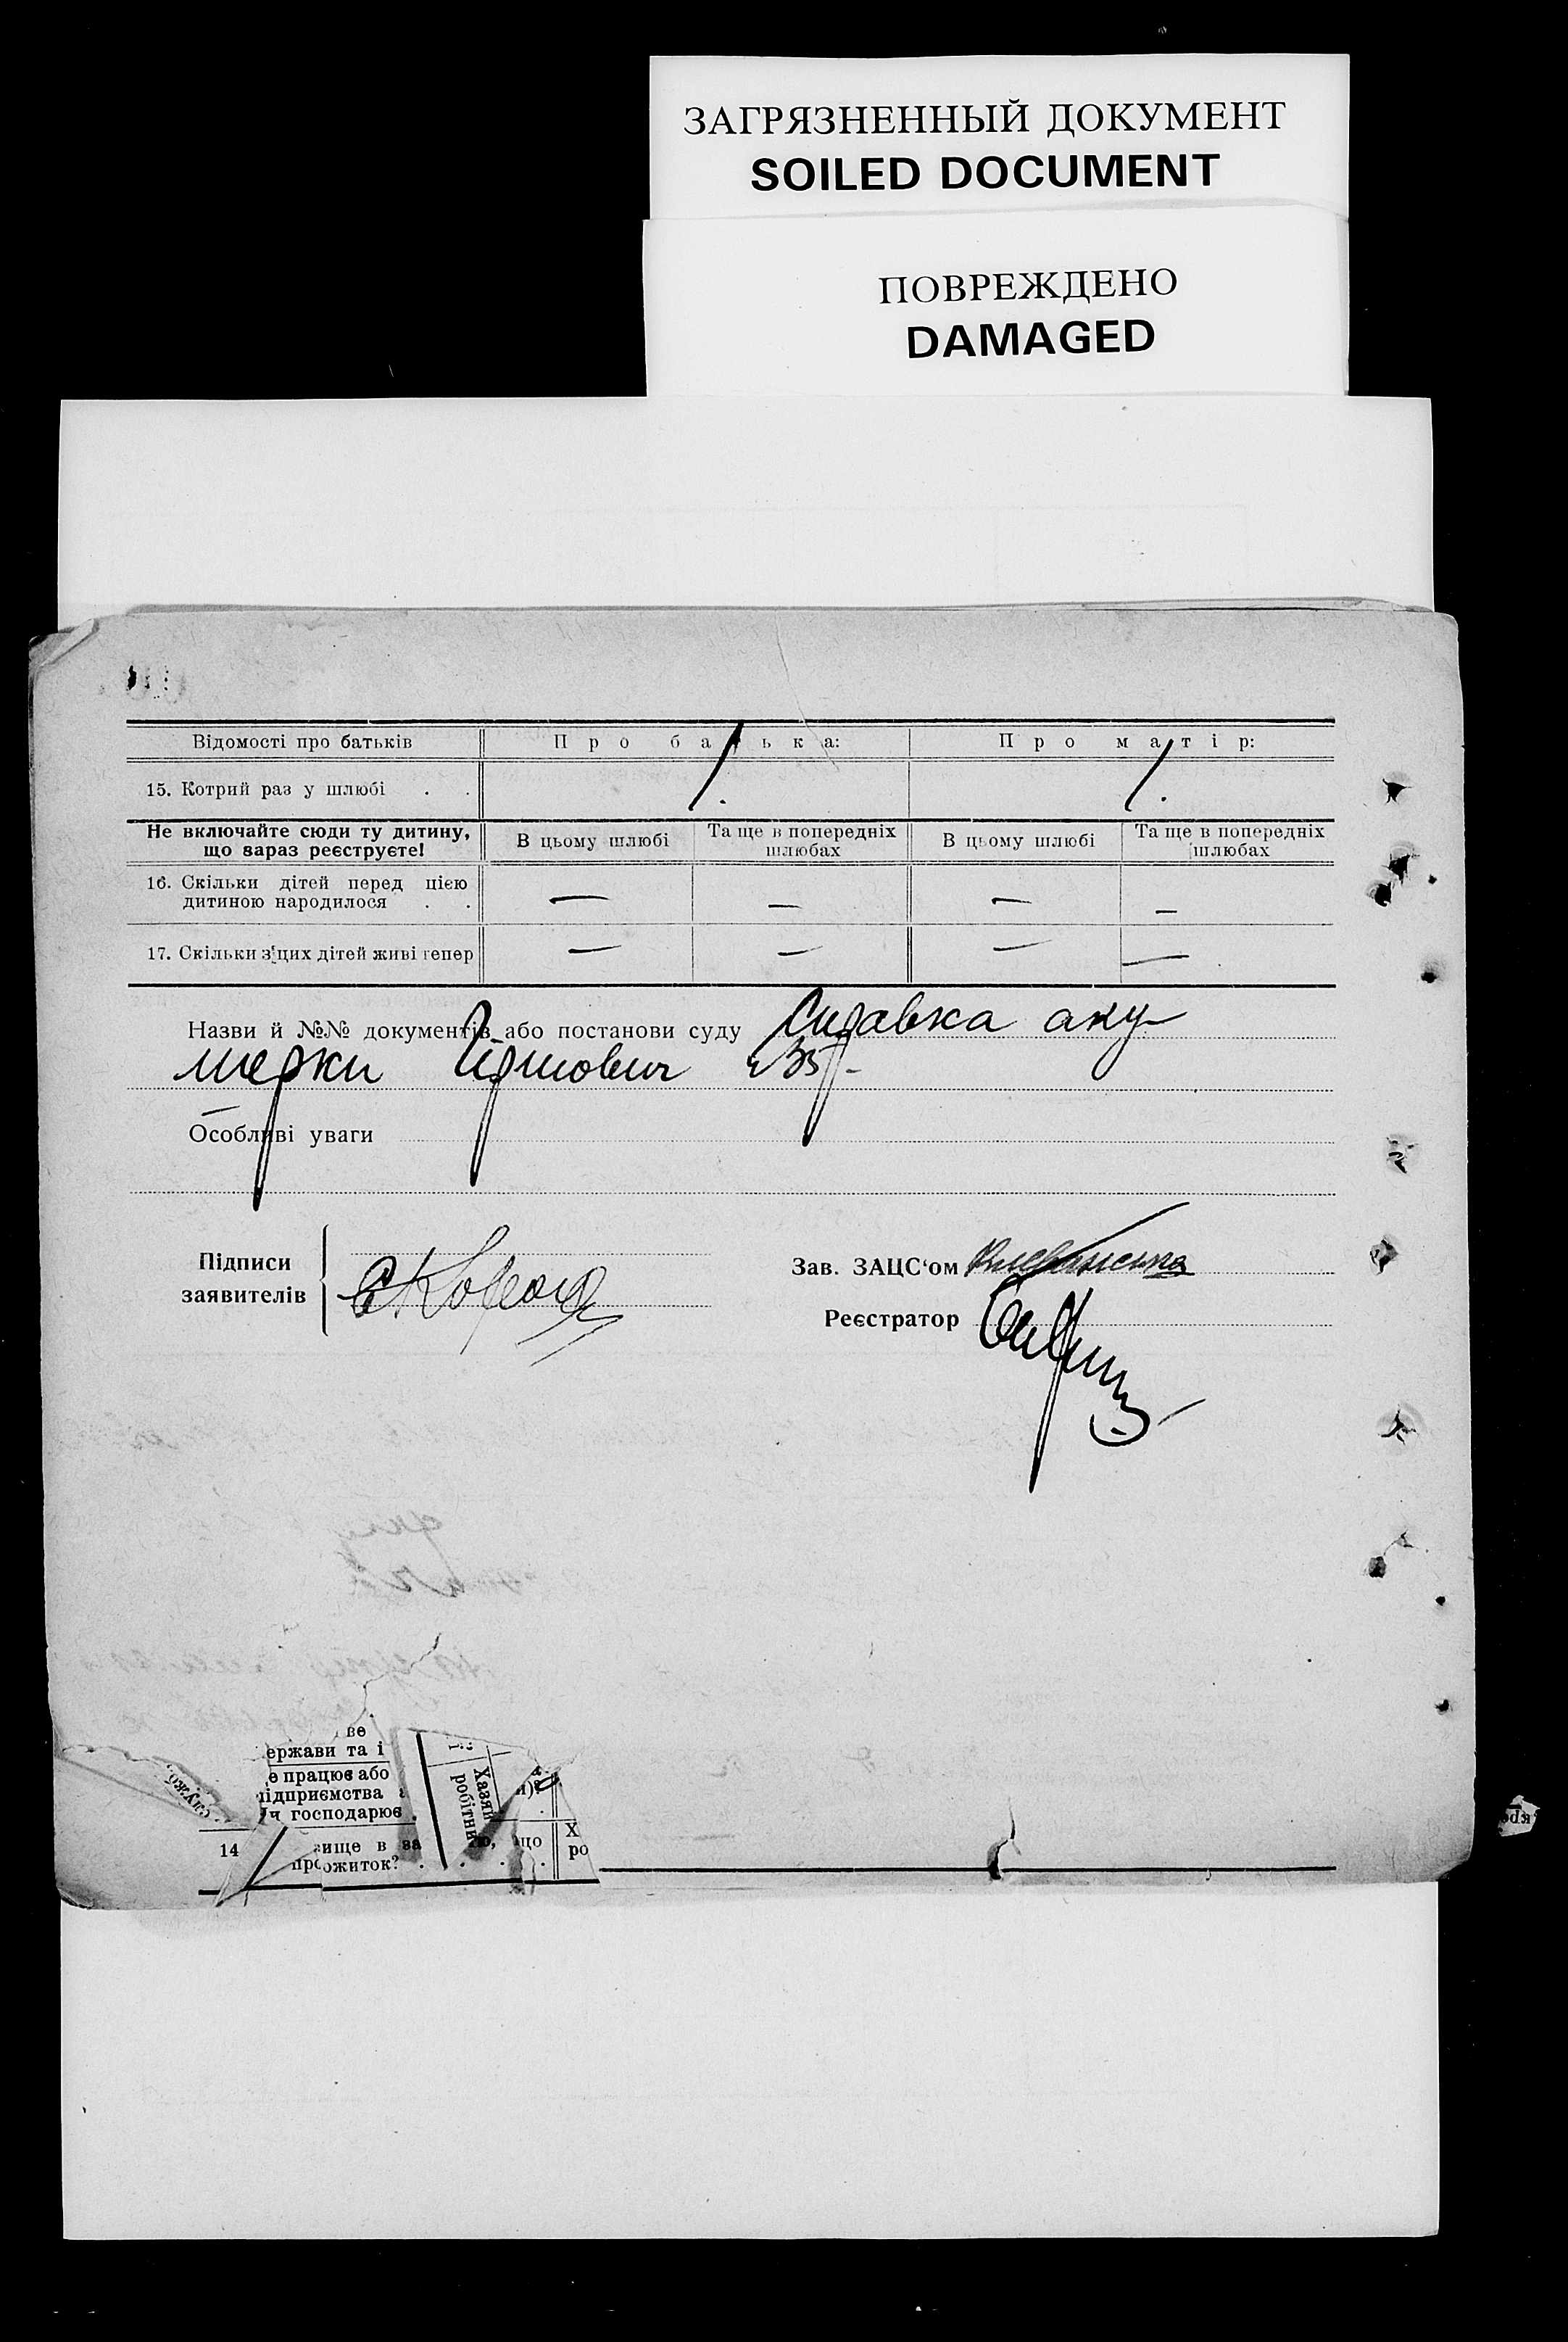 ЗАГРЯЗНЕННЫЙ ДОКУМЕНТ
SOILED DOCUMENT
ПОВРЕЖДЕНО
DAMAGED
Відомості про батьків Про батька: Про матір:
15. Котрий раз у шлюбі . . 1. 1.
Не включайте сюди ту дитину, що зараз реєструєте! В цьому шлюбі Та ще в попередніх шлюбах В цьому шлюбі Та ще в попередніх шлюбах
16. Скільки дітей перед цією
дитиною народилося . . — — — —
17. Скільки з цих дітей живі тепер — — — —
Назви й №№ документів або постанови суду Справка аку-
шерки
Особливі уваги
Підписи
заявителів
Зав. ЗАЦС'ом
Реєстратор
ве
ержави та і
е працює або
підприємства
Чи господарює .
14 вище в за що
прожиток? . . . .
Хазяй
робітни
Х
ро
служб.